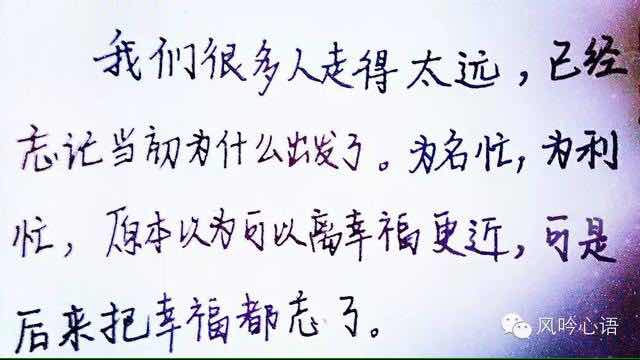 我们很多人走得太远，已经
忘记当初为什么出发了。为名忙，为利
忙，原本以为可以离幸福更近，可是
后来把幸福都忘了。
风吟心语